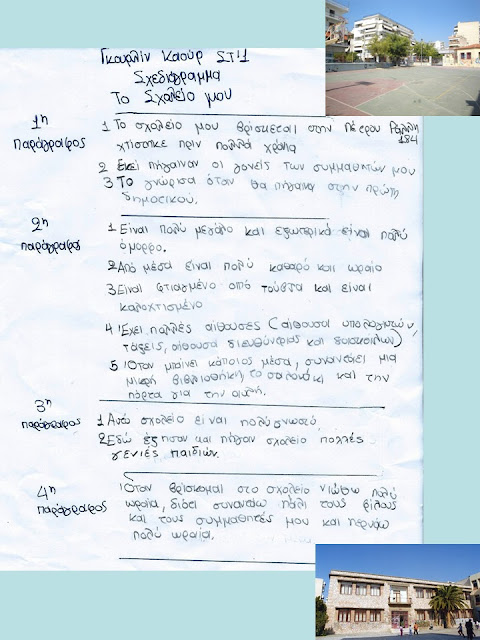 Γκουρλίν Καούρ ΣΤ'1
Σχεδιάγραμμα
Το Σχολείο μου
1η παράγραφος
1 Το σχολείο μου βρίσκεται στην Πέτρου Ράλλη 184
χτίστηκε πριν πολλά χρόνια
2 εκεί πήγαιναν οι γονείς των συμμαθητών μου
3 Το γνώρισα όταν θα πήγαινα στην πρώτη
δημοτικού.
2η παράγραφος
1 Είναι πολύ μεγάλο και εξωτερικά είναι πολύ
όμορφο.
2 Από μέσα είναι πολύ καθαρό και ωραίο
3 Είναι φτιαγμένο από τούβλα και είναι
καλοχτισμένο
4 Έχει πολλές αίθουσες (αίθουσα υπολογιστών,
τάξεις, αίθουσα διευθύντριας και δασκάλων)
5 Όταν μπαίνει κάποιος μέσα, συναντάει μια
μικρή βιβλιοθήκη, το σαλονάκι και την
πόρτα για την αυλή.
3η παράγραφος
1 Αυτό σχολείο είναι πολύ γνωστό
2 Εδώ έζησαν και πήγαν σχολείο πολλές
γενιές παιδιών.
4η παράγραφος
Όταν βρίσκομαι στο σχολείο νιώθω πολύ
ωραία, διότι συναντάω πάλι τους φίλους
και τους συμμαθητές μου και περνάω
πολύ ωραία.